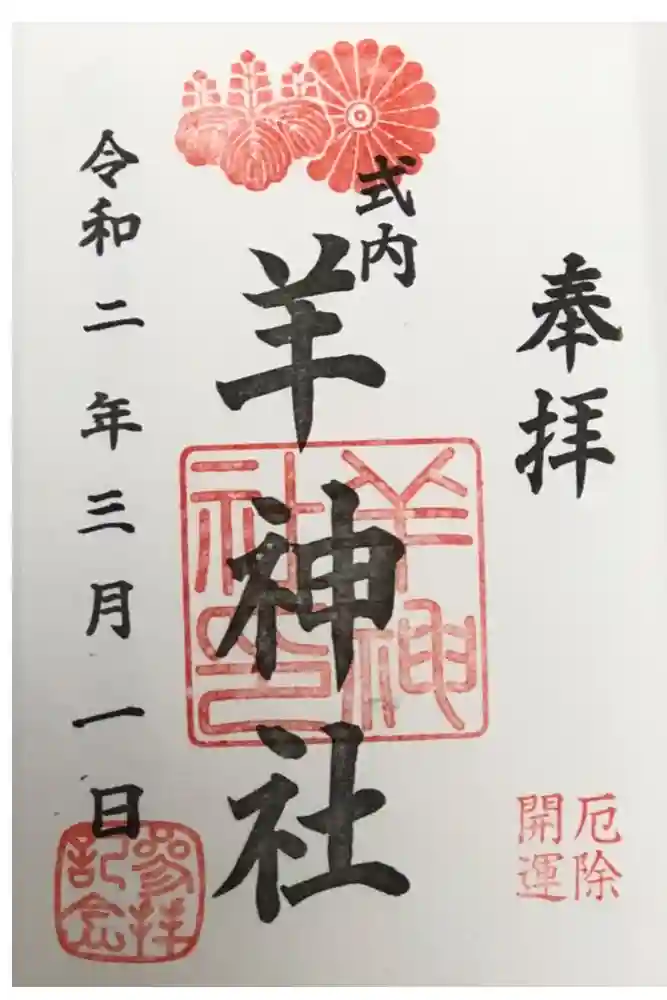 奉拝
厄除
開運
式内
羊神社
羊神
社印
令和二年三月一日
参拝
記念